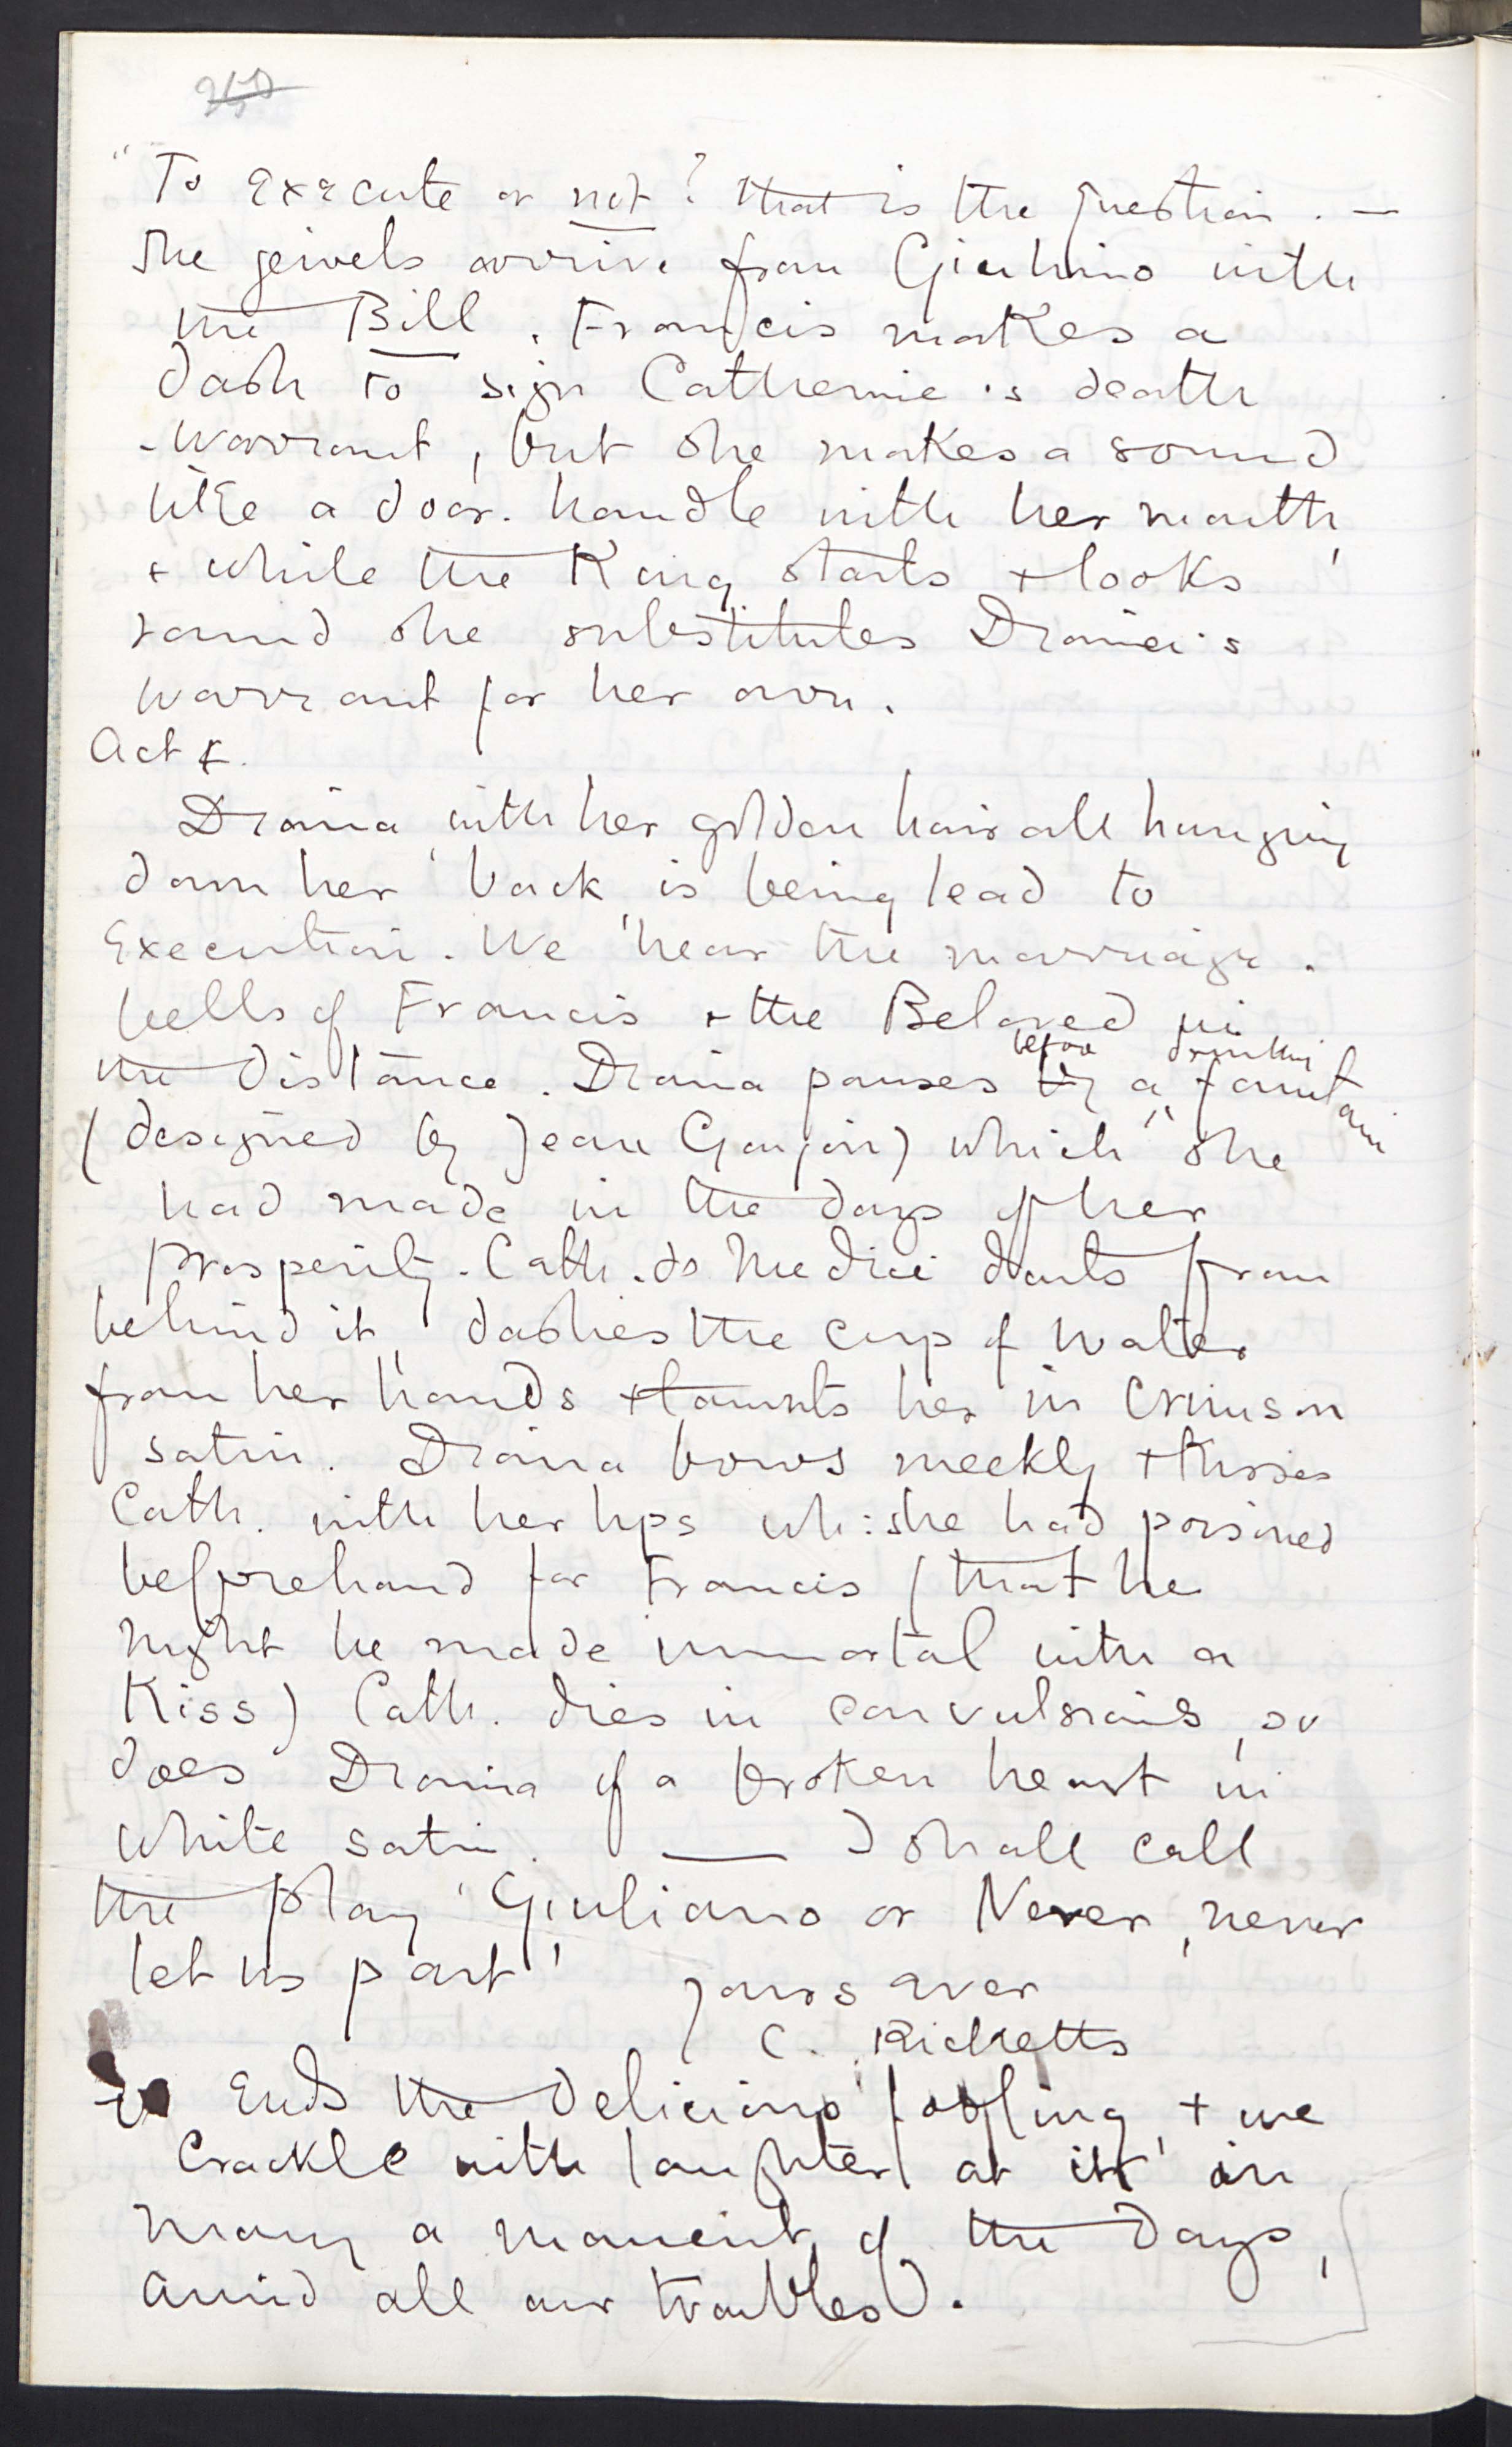 "To Execute or not? that is the question. —
The jewels arrive from Giuliano with
the Bill. Francis makes a
dash to sign Catherine's death
-warrant, but she makes a sound
like a door-handle with her mouth,
+ while the King starts + looks
round she substitutes Diana's
warrant for her own.
Act
Diana, with her golden hair all hanging
down her back, is being lead to
Execution. We hear the marriage-
bells of Francis + the Beloved in
the distance. Diana pauses before a drinking fountain
(designed by Jean Goujon) which she
had made in the days of her
prosperity. Cath. de Medici darts from
behind it, dashes the cup of water
from her hands + taunts her in crimson
satin. Diana bows meekly + kisses
Cath. with her lips wh: she had poisoned
beforehand for Francis (that he
might be made immortal with a
Kiss) Cath. dies in convulsions, so
does Diana of a broken heart in
white satin. — I shall call
the play 'Giuliano or Never, never
let us part'
yours ever
C. Ricketts
So Ends the delicious fooling, + we
Crackle with laughter at it in
many a moment of the days,
amid all our troubles.